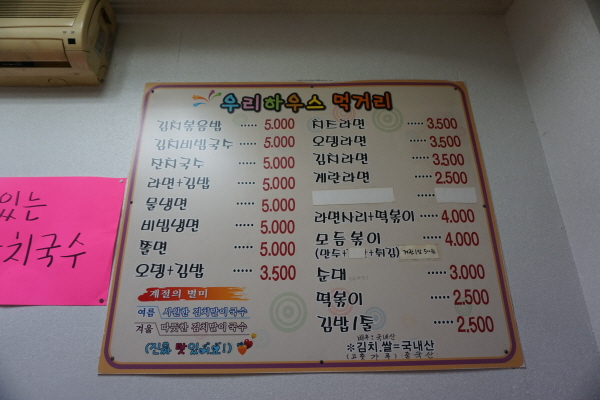 우리하우스 먹거리
김치볶음밥 ····· 5.000
김치비빔국수 ····· 5.000
잔치국수 ····· 5.000
라면+김밥 ····· 5.000
물냉면 ····· 5.000
비빔냉면 ····· 5.000
쫄면 ····· 5.000
오뎅+김밥 ···· 3.500
계절의 별미
여름 시원한 김치말이국수
겨울 따뜻한 김치말이국수
(진짜 맛있어요!)
치즈라면 ····· 3.500
오뎅라면 ····· 3.500
김치라면 ····· 3.500
계란라면 ····· 2.500
라면사리+떡볶이 ···· 4.000
모듬볶이 ···· 4.000
(만두+ +튀김)
순대 ····· 3.000
떡볶이 ····· 2.500
김밥1줄 ····· 2.500
배추:국내산
※김치.쌀=국내산
(고춧가루)중국산
있는
치국수